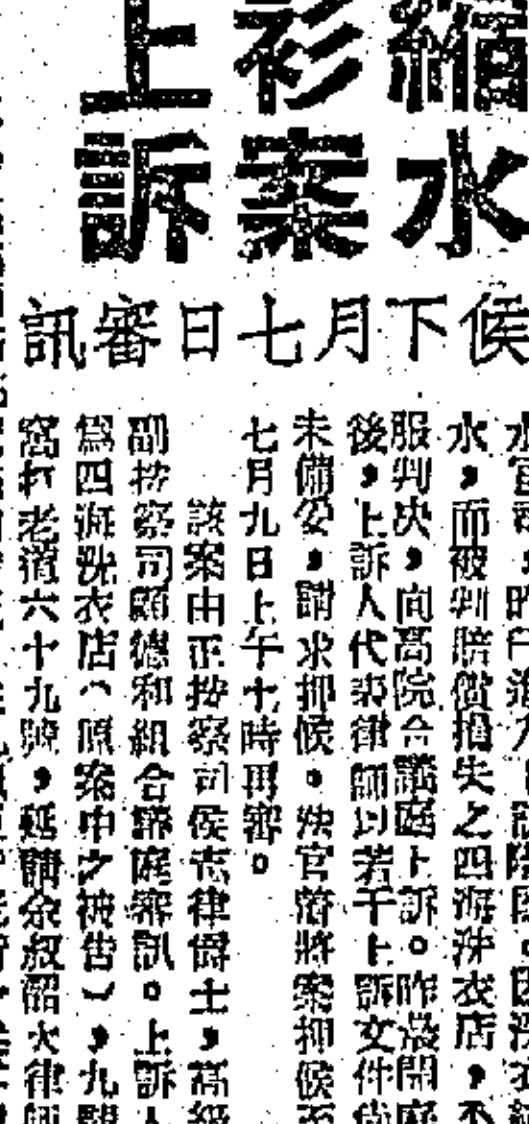 縮水
衫案
上訴
候下月七日審訊
水，而被判賠償損失之四海洗衣店，不
服判決，向高院合議庭上訴。昨晨開庭
後，上訴人代表律師以若干上訴文件尚
未備妥，請求押候。法官將案押候至
七月九日上午十時再審。
該案由正按察司侯志律爵士，高級
副按察司顧德和組合議庭審訊。上訴人
為四海洗衣店（原案中之被告），九龍
窩打老道六十九號，延請余叔韶大律師